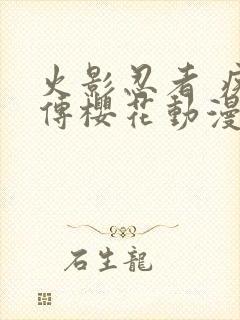 火影忍者 疾
傳櫻花動漫
石生龍